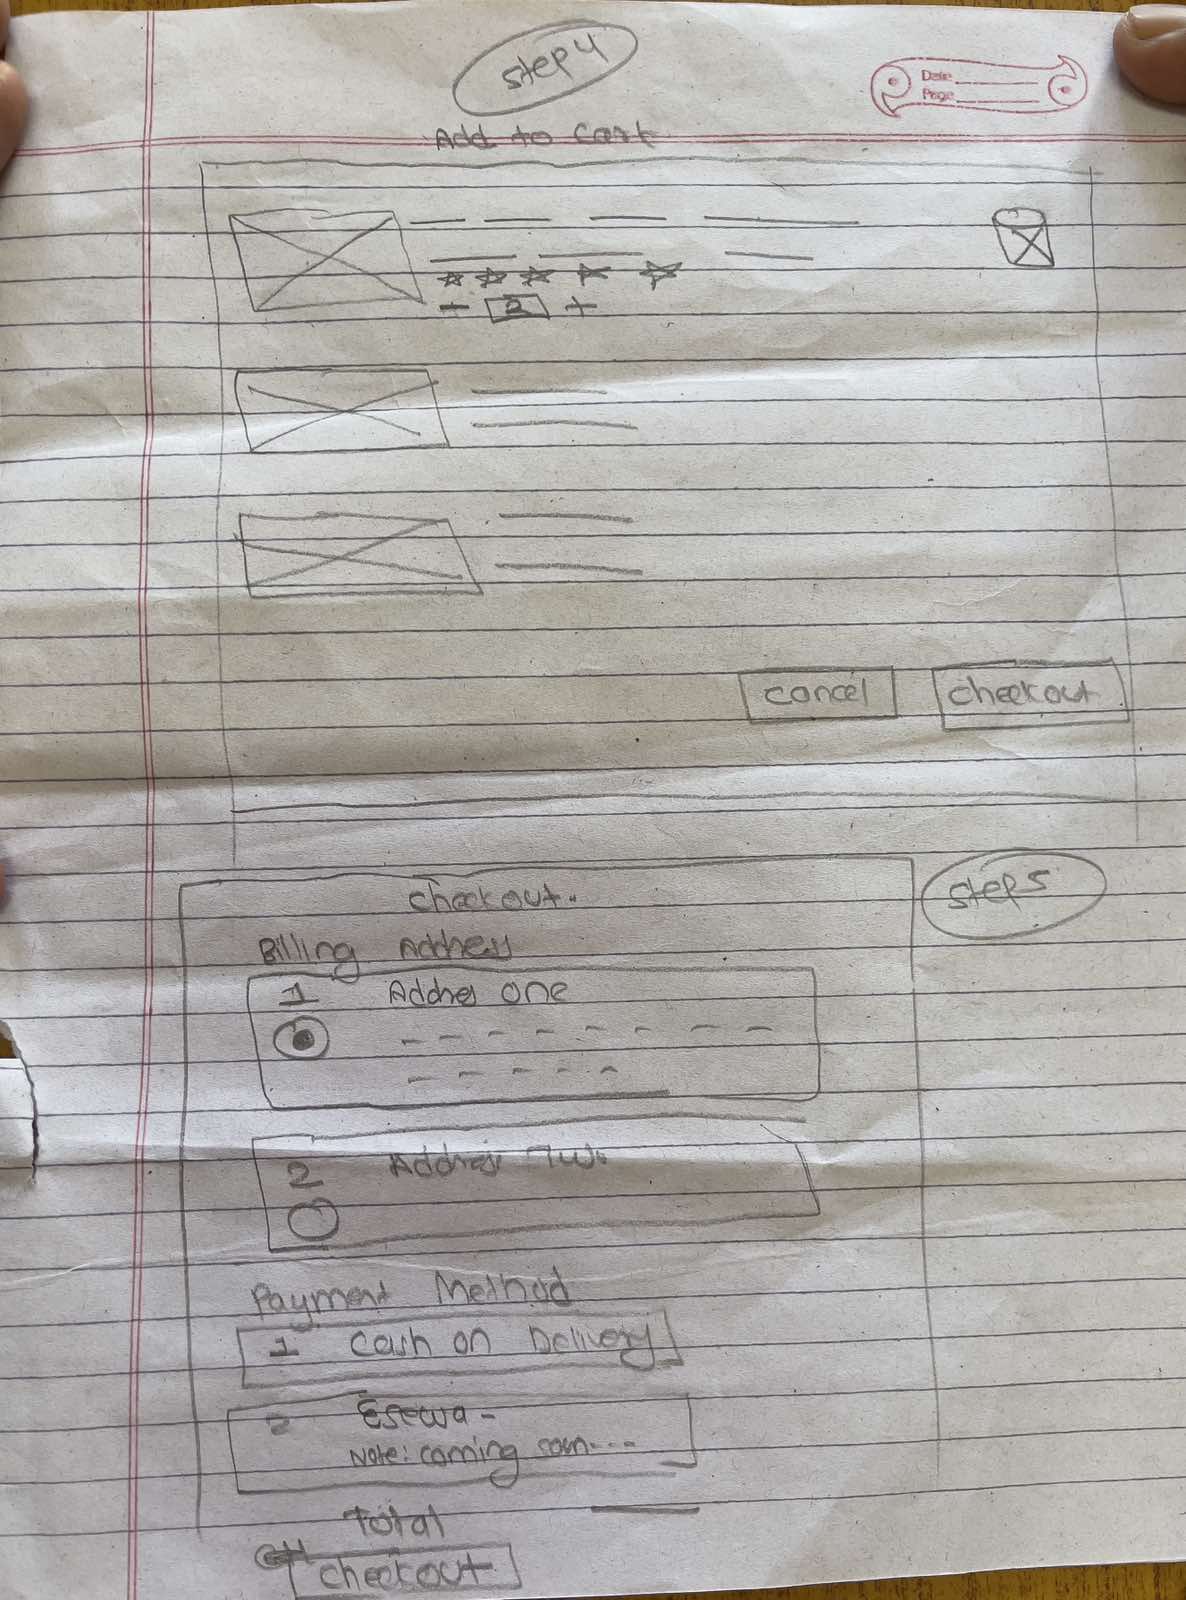 Step 4
Date
Page
Add to Cart
- 2 +
cancel
checkout
Step 5
checkout.
Billing Address
1 Addres one
2 Address Two
Payment Method
1 Cash on Delivery
2 Esewa -
Note: coming soon---
Total
checkout